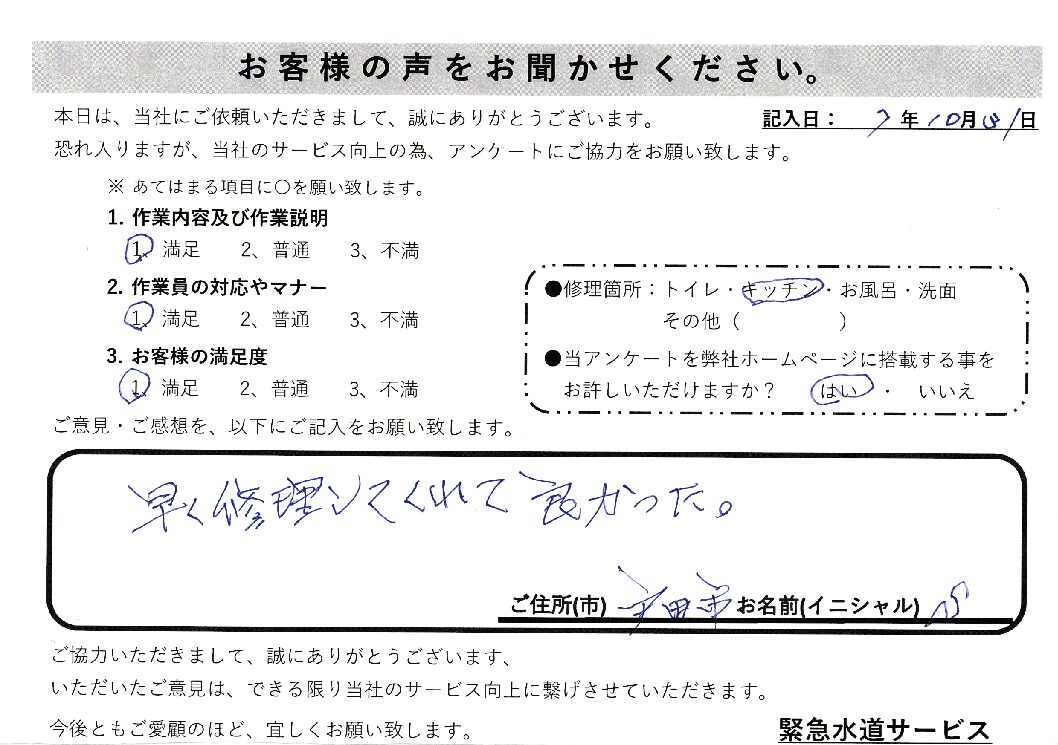 お客様の声をお聞かせください。
本日は、当社にご依頼いただきまして、誠にありがとうございます。
記入日： 7年10月 日
恐れ入りますが、当社のサービス向上の為、アンケートにご協力をお願い致します。
※ あてはまる項目に〇を願い致します。
1. 作業内容及び作業説明
1、満足 2、普通 3、不満
2. 作業員の対応やマナー
1、満足 2、普通 3、不満
3. お客様の満足度
1、満足 2、普通 3、不満
●修理箇所：トイレ・キッチン・お風呂・洗面
その他（ ）
●当アンケートを弊社ホームページに搭載する事を
お許しいただけますか？ はい ・ いいえ
ご意見・ご感想を、以下にご記入をお願い致します。
早く修理してくれて良かった。
ご住所(市) 市 お名前(イニシャル)
ご協力いただきまして、誠にありがとうございます、
いただいたご意見は、できる限り当社のサービス向上に繋げさせていただきます。
今後ともご愛顧のほど、宜しくお願い致します。
緊急水道サービス